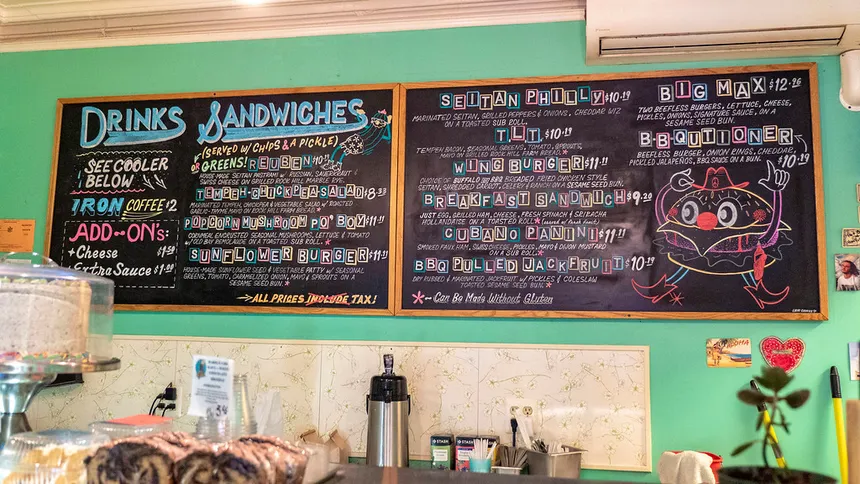 DRINKS
SEE COOLER
BELOW
IRON COFFEE $2
ADD-ON's:
+Cheese $1.50
Extra Sauce $1.00
SANDWICHES
(SERVED W/ CHIPS & A PICKLE)
OR GREENS!
REUBEN $10.19
HOUSE MADE SEITAN PASTRAMI W/ RUSSIAN, SAUERKRAUT
SWISS CHEESE ON GRILLED ROCK HILL MARBLE RYE.
TEMPEH-CHICKPEA SALAD $8.33
MARINATED TEMPEH, CHICKPEA & VEGETABLE SALAD W/ ROASTED
GARLIC-THYME MAYO ON ROCK HILL FARM BREAD.*
POPCORN MUSHROOM PO' BOY $11.11
CORNMEAL ENCRUSTED SEASONAL MUSHROOMS, LETTUCE & TOMATO
W/ OLD BAY REMOULADE ON A TOASTED SUB ROLL.*
SUNFLOWER BURGER $11.11
HOUSE-MADE SUNFLOWER SEED & VEGETABLE PATTY W/ SEASONAL
GREENS, TOMATO, CARAMELIZED ONION, MAYO & SPROUTS ON A
SESAME SEED BUN.*
→ALL PRICES INCLUDE TAX!
SEITAN PHILLY $10.19
MARINATED SEITAN, GRILLED PEPPERS & ONIONS, CHEDDAR WIZ
ON A TOASTED SUB ROLL.
T.L.T. $10.19
TEMPEH BACON, SEASONAL GREENS, TOMATO, SPROUTS,
MAYO ON GRILLED ROCK HILL FARM BREAD.*
WING BURGER $11.11
CHOICE OF BUFFALO OR BBQ BREADED FRIED CHICKEN STYLE
SEITAN, SHREDDED CARROT, CELERY & RANCH ON A SESAME SEED BUN.
BREAKFAST SANDWICH $9.20
JUST EGG, GRILLED HAM, CHEESE, FRESH SPINACH & SRIRACHA
HOLLANDAISE ON A TOASTED ROLL.*
CUBANO PANINI $11.11
SMOKED FAUX HAM, SWISS CHEESE, PICKLES, MAYO & DIJON MUSTARD
ON A SUB ROLL.*
BBQ PULLED JACKFRUIT $10.19
DRY RUBBED & MARINATED JACKFRUIT W/ PICKLES & COLESLAW
TOASTED SESAME SEED BUN.*
*~ Can Be Made Without Gluten
BIG MAX $12.96
TWO BEEFLESS BURGERS, LETTUCE, CHEESE,
PICKLES, ONIONS, SIGNATURE SAUCE, ON A
SESAME SEED BUN.
B-B-QUTIONER $10.19
BEEFLESS BURGER, ONION RINGS, CHEDDAR,
PICKLED JALAPEÑOS, BBQ SAUCE ON A BUN.
STASH
STASH